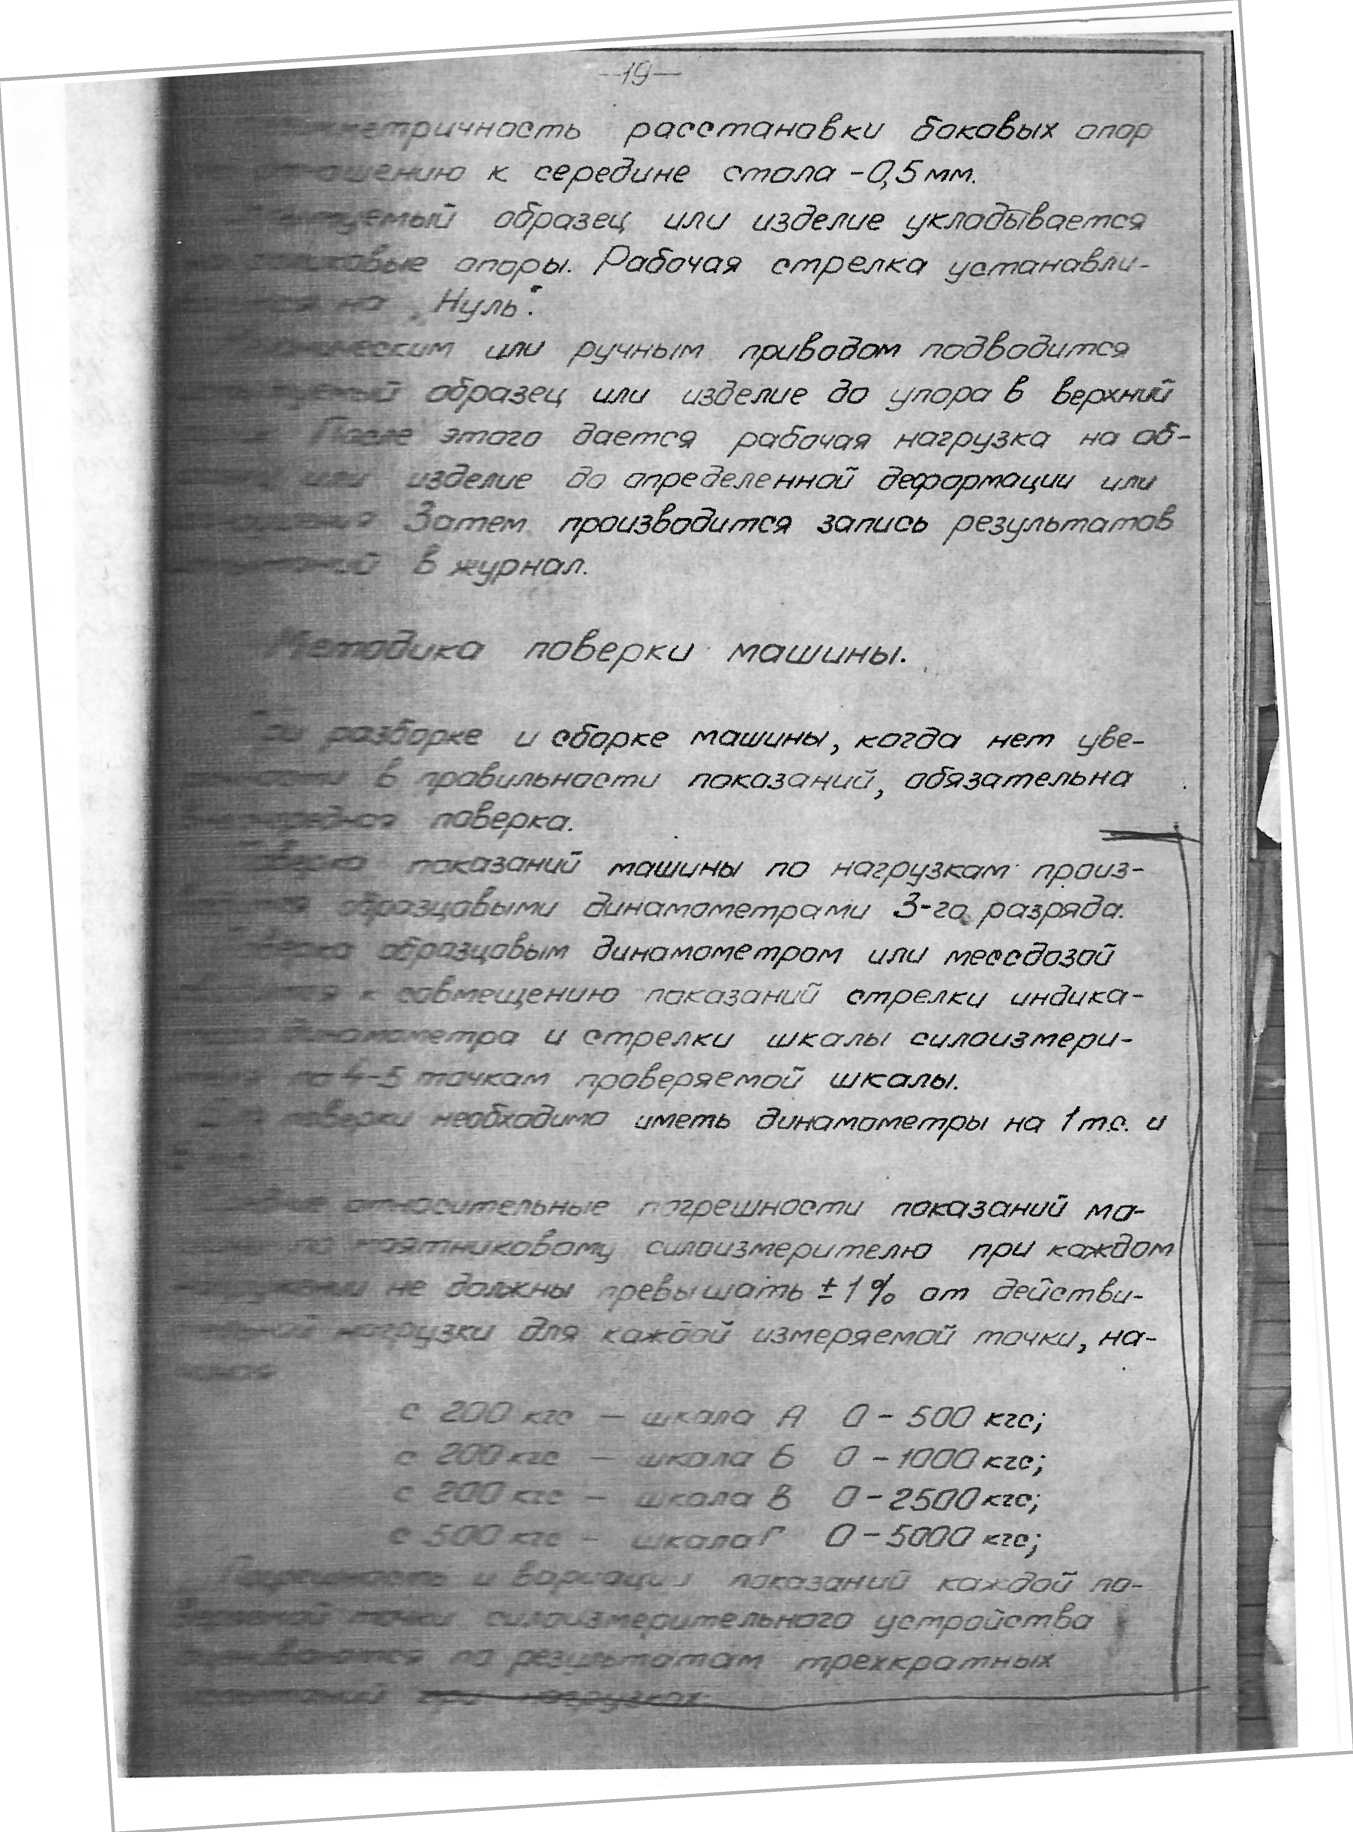 -19-
расстановки боковых опор
отношению к середине стола -0,5 мм.
образец или изделие укладывается
опоры. Рабочая стрелка устанавли-
на „Нуль".
или ручным приводом подводится
образец или изделие до упора в верхний
После этого дается рабочая нагрузка на об-
или изделие до определенной деформации или
Затем производится запись результатов
в журнал.
Методика поверки машины.
При разборке и сборке машины, когда нет уве-
в правильности показаний, обязательна
внеочередная поверка.
Поверка показаний машины по нагрузкам произ-
образцовыми динамометрами 3-го разряда.
Поверка образцовым динамометром или мессдозой
к совмещению показаний стрелки индика-
динамометра и стрелки шкалы силоизмери-
по 4-5 точкам проверяемой шкалы.
поверки необходимо иметь динамометры на 1 т.с. и
относительные погрешности показаний ма-
по маятниковому силоизмерителю при каждом
не должны превышать ±1% от действи-
нагрузки для каждой измеряемой точки, на-
с 200 кгс - шкала А 0-500 кгс;
с 200 кгс - шкала Б 0-1000 кгс;
с 200 кгс - шкала В 0-2500 кгс;
с 500 кгс - шкала Г 0-5000 кгс;
Погрешность и вариации показаний каждой по-
веряемой точки силоизмерительного устройства
по результатам трехкратных
при нагрузках